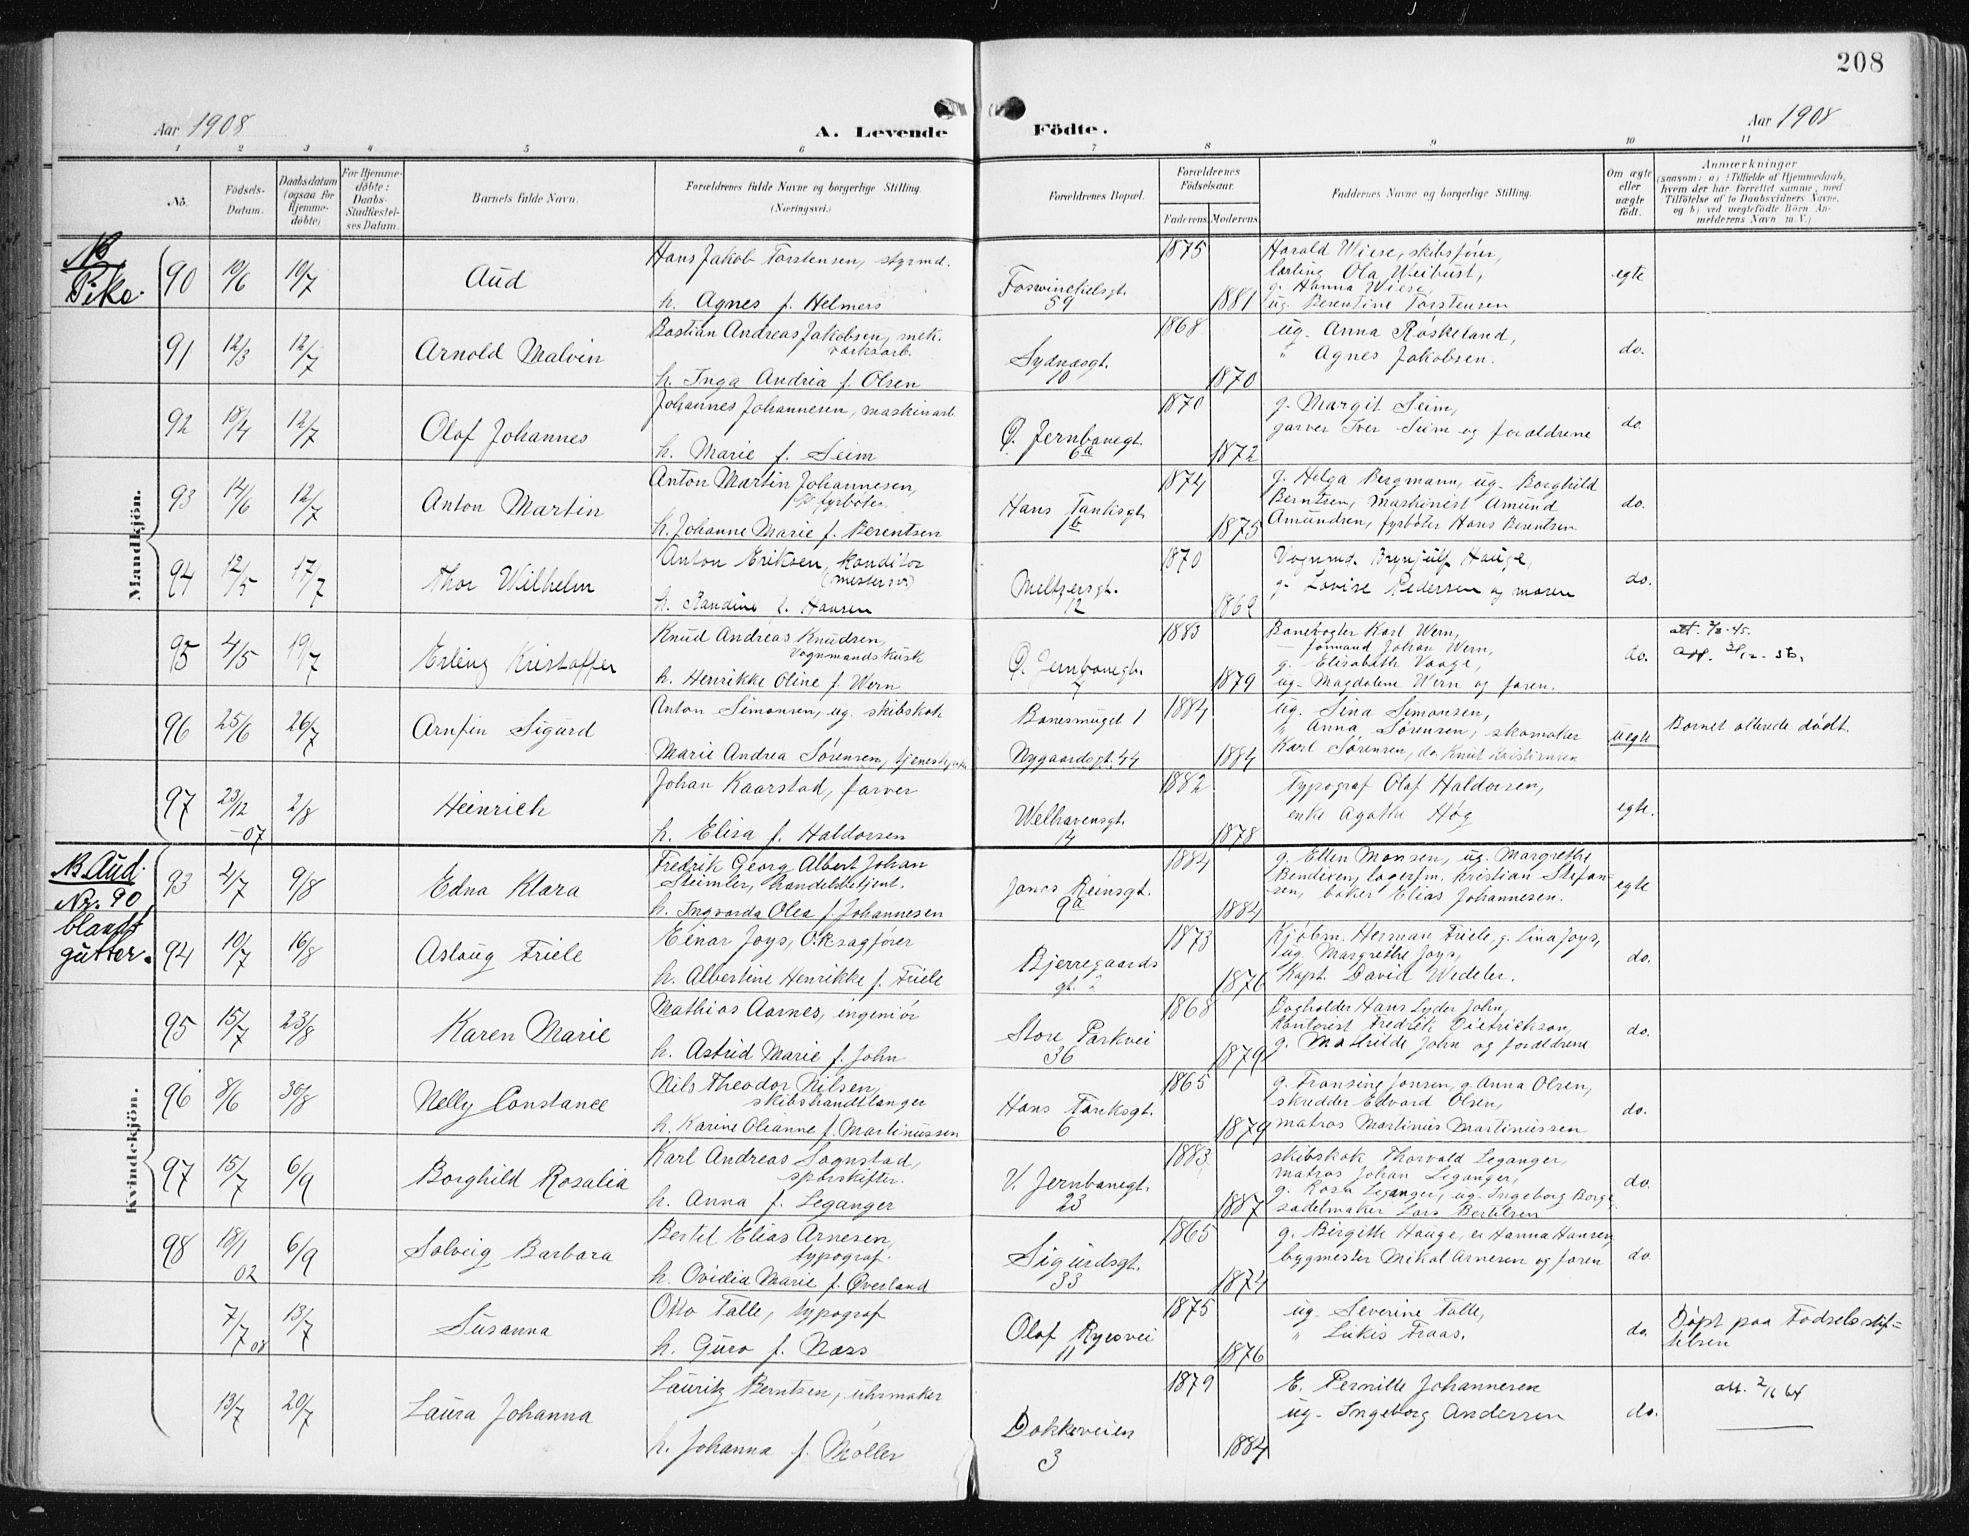 208
Aar 1908
A. Levende Födte.
Aar 1908
1 2 3 4 5 6 7 8 9 10 11
No.
Födsels-Datum.
Daabsdatum (ogsaa for Hjemmedöbte)
For Hjemmedöbte: Daabs-Stadfæstelses Datum.
Barnets fulde Navn.
Forældrenes fulde Navne og borgerlige Stilling.
(Næringsvei.)
Forældrenes Bopæl.
Forældrenes Födselsaar.
Faderens. Moderens.
Faddernes Navne og borgerlige Stilling.
Om ægte eller uægte födt.
Anmærkninger
(saasom: a) i Tilfælde af Hjemmedaab,
hvem der har forrettet samme, med
Tilföielse af to Daabsvidners Navne.
og b) ved uægtefödte Börn An-
melderens Navn m. V.)
Mandkjön.
NB
Pike.
90 10/6 10/7 Aud
Hans Jakob Torstensen, styrmd.
h. Agnes f. Helmers
59
1875 1881
Harald Wiese, skibsfører,
lærling Ola Weibust,
g. Hanna Wiese,
ug. Berentine Torstensen
egte
91 12/3 12/7 Arnold Malvin
Bastian Andreas Jakobsen, mek.
værksarb.
h. Inga Andria f. Olsen
Sydnæsgt.
10
1868 1870
ug. Anna Røskeland,
" Agnes Jakobsen.
do.
92 18/4 12/7 Olaf Johannes
Johannes Johannesen, maskinarb.
h. Marie f. Seim
Ø. Jernbanegt.
6a
1870 1872
g. Margit Seim,
garver Iver Seim og forældrene
do.
93 14/6 12/7 Anton Martin
Anton Martin Johannesen,
fyrbøter
h. Johanne Marie f. Berentsen
Hans Tanksgt.
1b
1874 1875
g. Helga Bergmann, ug. Borghild
Berntsen, maskinist Amund
Amundsen, fyrbøter Hans Berentsen
do.
94 12/5 17/7 Thor Wilhelm
Anton Eriksen, konditor
(mestersv.)
h. Randine f. Hansen
Meltzersgt.
12
1870 1869
Vognmd. Brynjulf Hauge,
g. Lovise Pedersen og moren
do.
95 4/5 19/7 Erling Kristoffer
Knud Andreas Knudsen,
Vognmandskusk
h. Henrikke Oline f. Wern
Ø. Jernbanegt.
7
1883 1879
Banevogter Karl Wern,
formand Johan Wern,
g. Elisabeth Vaage,
ug. Magdalene Wern og faren.
do.
96 25/6 26/7 Arnfin Sigurd
Anton Simonsen, ug. skibskok
Marie Andrea Sørensen,
Banesmuget 1
Nygaardsgt. 44
1884 1884
ug. Sina Simonsen,
" Anna Sørensen, skomaker
Karl Sørensen, do. Knut Kristensen
uegte
Barnet allerede dødt.
97 23/12 -07 2/8 Heinrich
Johan Kaarstad, farver
h. Elisa f. Haldorsen
Welhavensgt.
14
1882 1878
Typograf Olaf Haldorsen,
enke Agathe Høg
egte.
Kvindekjön.
NB Aud.
Nr. 90
blandt
gutter.
93 4/7 9/8 Edna Klara
Fredrik Georg Albert Johan
Steimler, handelsbetjent.
h. Ingvarda Olea f. Johannesen
Jonas Reinsgt.
9a
1884 1884
g. Ellen Monsen, ug. Margrethe
Bendixen, lagerfm. Kristian Stefan-
sen, baker Elias Johannesen.
egte
94 10/7 16/8 Aslaug Friele
Einar Joys, O.R.sagfører
h. Albertine Henrikke f. Friele
Bjerregaards
gt. 2
1873 1876
Kjøbm. Herman Friele, g. Lina Joys,
ug. Margrethe Joys,
Kapt. David Wedeler.
do.
95 15/7 23/8 Karen Marie
Mathias Aarnes, ingeniør
h. Astrid Marie f. John
Store Parkvei
36
1868 1879
Bogholder Hans Lyder John,
kontorist Fredrik Dietrichson,
g. Mathilde John og forældrene
do.
96 8/6 30/8 Nelly Constance
Nils Theodor Nilsen,
skibshandtlanger
h. Karine Oleanne f. Martinussen
Hans Tanksgt.
6
1865 1879
g. Fransine Jonsen, g. Anna Olsen,
skredder Edvard Olsen,
matros Martinus Martinussen
do.
97 15/7 6/9 Borghild Rosalia
Karl Andreas Sognstad,
sporskifter.
h. Anna f. Leganger
V. Jernbanegt.
23
1883 1887
skibskok Thorvald Leganger,
matros Johan Leganger,
g. Rosa Leganger, ug. Ingeborg Borge
sadelmaker Lars Bertelsen
do.
98 18/1 02 6/9 Solveig Barbara
Bertel Elias Arnesen,
typograf.
h. Ovidia Marie f. Øverland
Sigurdsgt.
33
1865 1874
g. Birgitte Hauge, e. Hanna Hansen,
bygmester Mikal Arnesen og faren
do.
7/7 08 13/7 Susanna
Otto Talle, typograf
h. Guro f. Næss
Olaf Ryesvei
11
1875 1876
ug. Severine Talle,
" Lukis Fraas.
do.
Døpt paa Fødselsstif=
telsen
13/7 20/7 Laura Johanna
Lauritz Berntsen, uhrmaker
h. Johanna f. Møller
Dokkeveien
3
1879 1884
E. Pernille Johannesen
ug. Ingeborg Andersen
do.